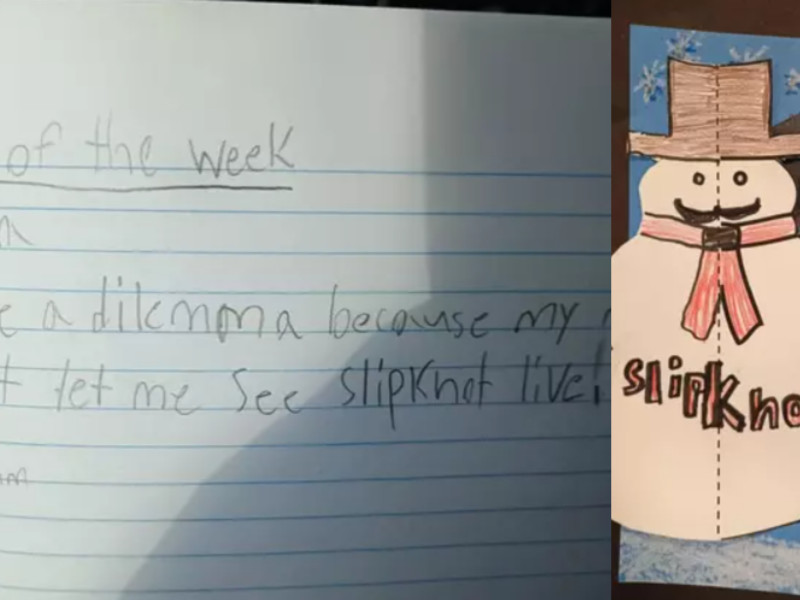 of the week
e a dilemma because my
t let me see slipknot live!
slipkno